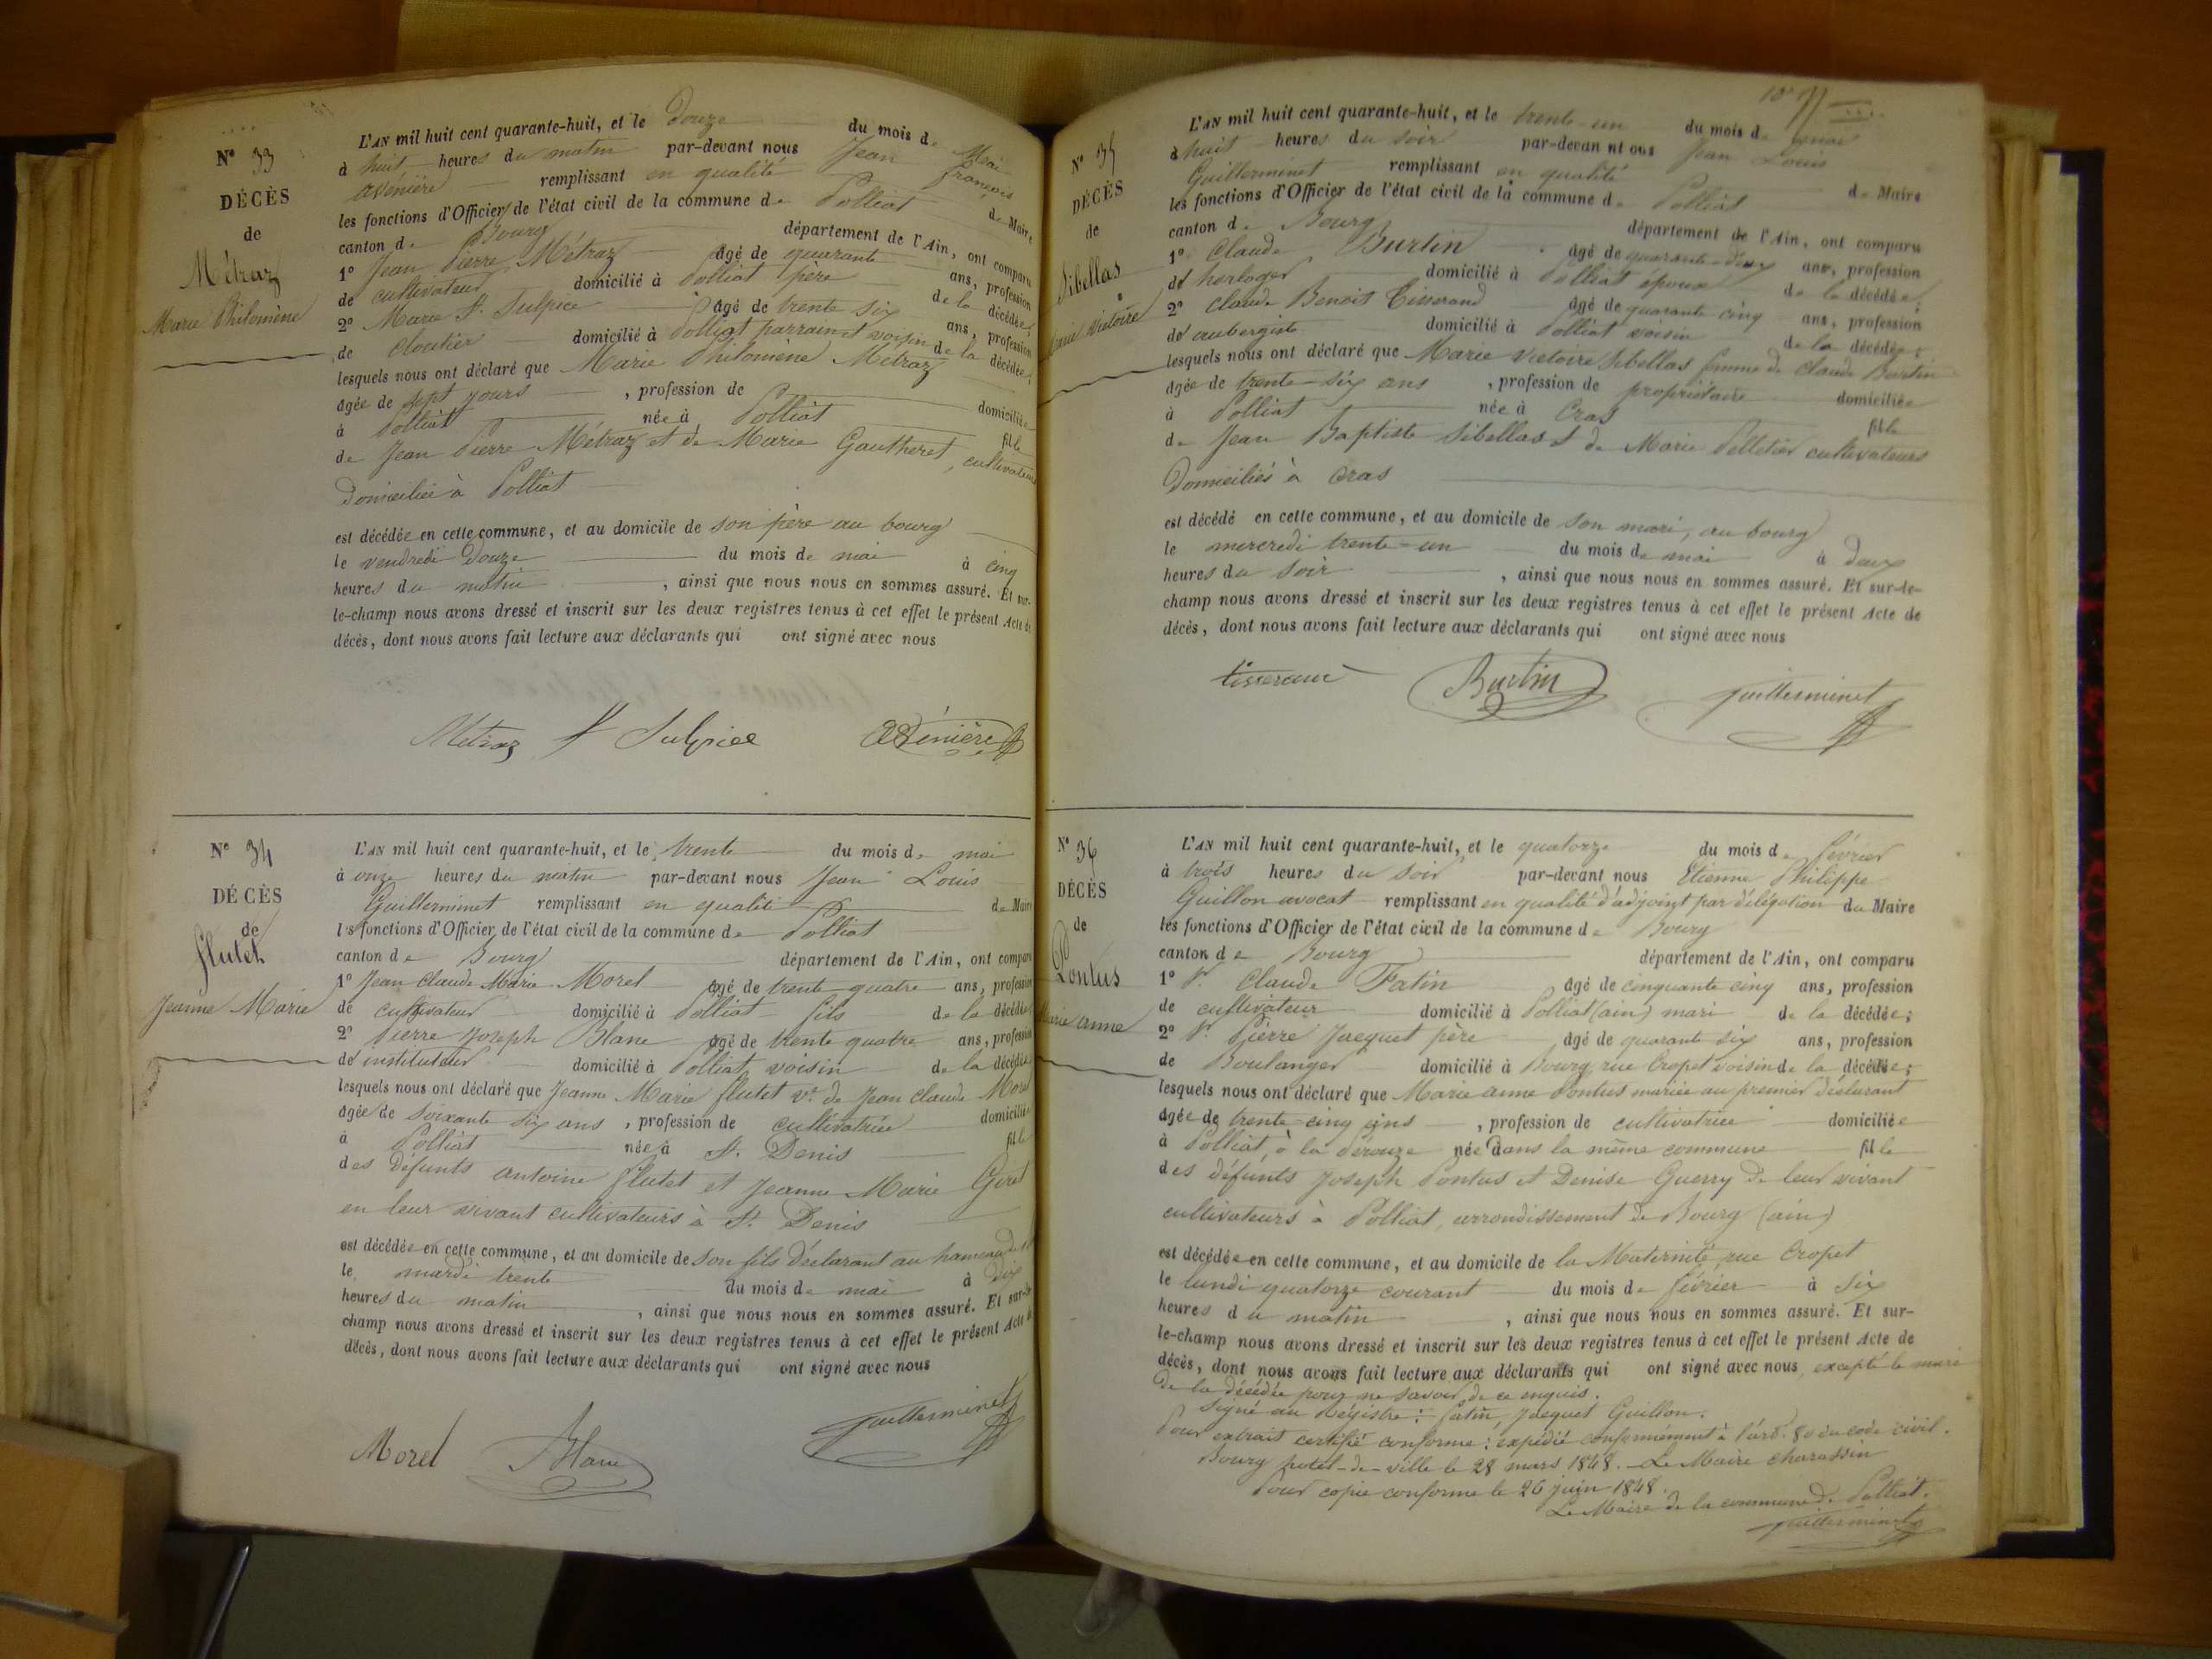 N° 33
DÉCÈS
de
Métraz
Marie Philomène
L'AN mil huit cent quarante-huit, et le douze du mois de Mai
à huit heures du matin par-devant nous Jean François
avénière remplissant en qualité de Maire
les fonctions d'Officier de l'état civil de la commune de Polliat
canton de Bourg département de l'Ain, ont comparu
1° Jean Pierre Métraz âgé de quarante ans, profession
de cultivateur domicilié à Polliat père de la décédée;
2° Marie St. Sulpice âgé de trente six ans, profession
de cloutier domicilié à Polliat parrain et voisin de la décédée;
lesquels nous ont déclaré que Marie Philomène Métraz
âgée de sept jours, profession de domiciliée
à Polliat née à Polliat fille
de Jean Pierre Métraz et de Marie Gautheret, cultivateurs
domiciliée à Polliat
est décédée en cette commune, et au domicile de son père au bourg
le vendredi douze du mois de mai à cinq
heures du matin, ainsi que nous nous en sommes assuré. Et sur-
le-champ nous avons dressé et inscrit sur les deux registres tenus à cet effet le présent Acte de
décès, dont nous avons fait lecture aux déclarants qui ont signé avec nous
Métraz St Sulpice Avénière
N° 34
DÉCÈS
de
flutet
Jeanne Marie
L'AN mil huit cent quarante-huit, et le trente du mois de mai
à onze heures du matin par-devant nous Jean Louis
Guillerminet remplissant en qualité de Maire
les fonctions d'Officier de l'état civil de la commune de Polliat
canton de Bourg département de l'Ain, ont comparu
1° Jean Claude Marie Morel âgé de trente quatre ans, profession
de cultivateur domicilié à Polliat fils de la décédée
2° Pierre Joseph Blanc âgé de trente quatre ans, profession
de instituteur domicilié à Polliat voisin de la décédée
lesquels nous ont déclaré que Jeanne Marie flutet ve. de Jean Claude Morel
âgée de soixante six ans, profession de cultivatrice domiciliée
à Polliat née à St. Denis fille
des défunts antoine flutet et Jeanne Marie
en leur vivant cultivateurs à St. Denis
est décédée en cette commune, et au domicile de son fils déclarant au hameau
le mardi trente du mois de mai à dix
heures du matin, ainsi que nous nous en sommes assuré. Et sur-le-
champ nous avons dressé et inscrit sur les deux registres tenus à cet effet le présent Acte de
décès, dont nous avons fait lecture aux déclarants qui ont signé avec nous
Morel Blanc Guillerminet
N° 35
DÉCÈS
de
Sibellas
Marie Victoire
L'AN mil huit cent quarante-huit, et le trente-un du mois de mai
à huit heures du soir par-devan nt ous Jean Louis
Guillerminet remplissant en qualité de Maire
les fonctions d'Officier de l'état civil de la commune de Polliat
canton de Bourg département de l'Ain, ont comparu
1° Claude Burtin âgé de quarante-deux ans, profession
de horloger domicilié à Polliat époux de la décédée;
2° Claude Benoit Tisserand âgé de quarante cinq ans, profession
de aubergiste domicilié à Polliat voisin de la décédée;
lesquels nous ont déclaré que Marie Victoire Sibellas femme de Claude Burtin
âgée de trente-six ans, profession de propriétaire domiciliée
à Polliat née à Cras fille
de Jean Baptiste Sibellas & de Marie Pelletier cultivateurs
domiciliés à Cras
est décédé en cette commune, et au domicile de son mari, au bourg
le mercredi trente-un du mois de mai à deux
heures du soir, ainsi que nous nous en sommes assuré. Et sur-le-
champ nous avons dressé et inscrit sur les deux registres tenus à cet effet le présent Acte de
décès, dont nous avons fait lecture aux déclarants qui ont signé avec nous
tisserand Burtin Guillerminet
N° 36
DÉCÈS
de
Pontus
Marie anne
L'AN mil huit cent quarante-huit, et le quatorze du mois de février
à trois heures du soir par-devant nous Etienne Philippe
Guillon avocat remplissant en qualité d'adjoint par délégation du Maire
les fonctions d'Officier de l'état civil de la commune de Bourg
canton de Bourg département de l'Ain, ont comparu
1° Sr. Claude Fatin âgé de cinquante cinq ans, profession
de cultivateur domicilié à Polliat (ain) mari de la décédée;
2° Sr. Pierre Jacquet père âgé de quarante six ans, profession
de Boulanger domicilié à Bourg, rue Cropet voisin de la décédée;
lesquels nous ont déclaré que Marie anne Pontus mariée au premier déclarant
âgée de trente cinq ans, profession de cultivatrice domiciliée
à Polliat, à la née dans la même commune fille
des défunts Joseph Pontus & Denise Guerry de leur vivant
cultivateurs à Polliat, arrondissement de Bourg (ain)
est décédée en cette commune, et au domicile de la Maternité, rue Cropet
le lundi quatorze courant du mois de février à six
heures du matin, ainsi que nous nous en sommes assuré. Et sur-
le-champ nous avons dressé et inscrit sur les deux registres tenus à cet effet le présent Acte de
décès, dont nous avons fait lecture aux déclarants qui ont signé avec nous, excepté le mari
de la décédée pour ne savoir de ce enquis.
Signé au Régistre: fatin, Jacquet Guillon.
Pour extrait certifié conforme: expédié conformément à l'art. 80 du code civil.
Bourg hotel-de-ville le 28 mars 1848. Le Maire charassin
Pour copie conforme le 26 juin 1848.
Le Maire de la commune de Polliat.
Guillerminet